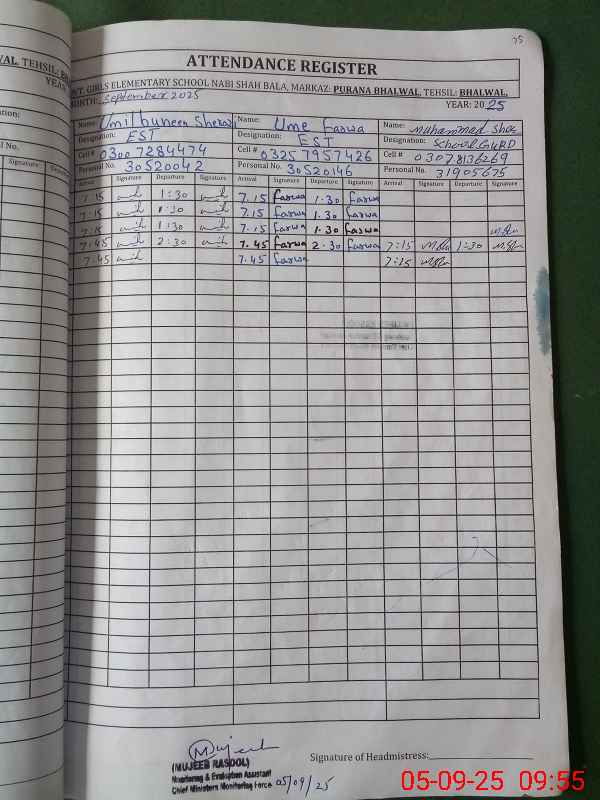 75
ATTENDANCE REGISTER
GOVT. GIRLS ELEMENTARY SCHOOL NABI SHAH BALA, MARKAZ: PURANA BHALWAL, TEHSIL: BHALWAL,
MONTH: September 2025 YEAR: 2025
Name: Name: Ume Farwa Name: Muhammad
Designation: EST Designation: EST Designation: School GuARD
Cell # 03007284474 Cell # 03257957426 Cell # 03078136269
Personal No. 30520042 Personal No. 30520146 Personal No. 31905675
Arrival Signature Departure Signature Arrival Signature Departure Signature Arrival Signature Departure Signature
7:15 1:30 7.15 farwa 1.30 farwa
7:15 1:30 7.15 farwa 1.30 farwa
7:15 1:30 7.15 farwa 1.30 farwa
7.45 2:30 7.45 farwa 2.30 farwa 7:15 1:30
7.45 7.45 farwa 7:15
Mujeeb
(MUJEEB RASOOL)
Monitoring & Evaluation Assistant
Chief Ministers Monitoring Force 05/09/25
Signature of Headmistress:
05-09-25 09:55